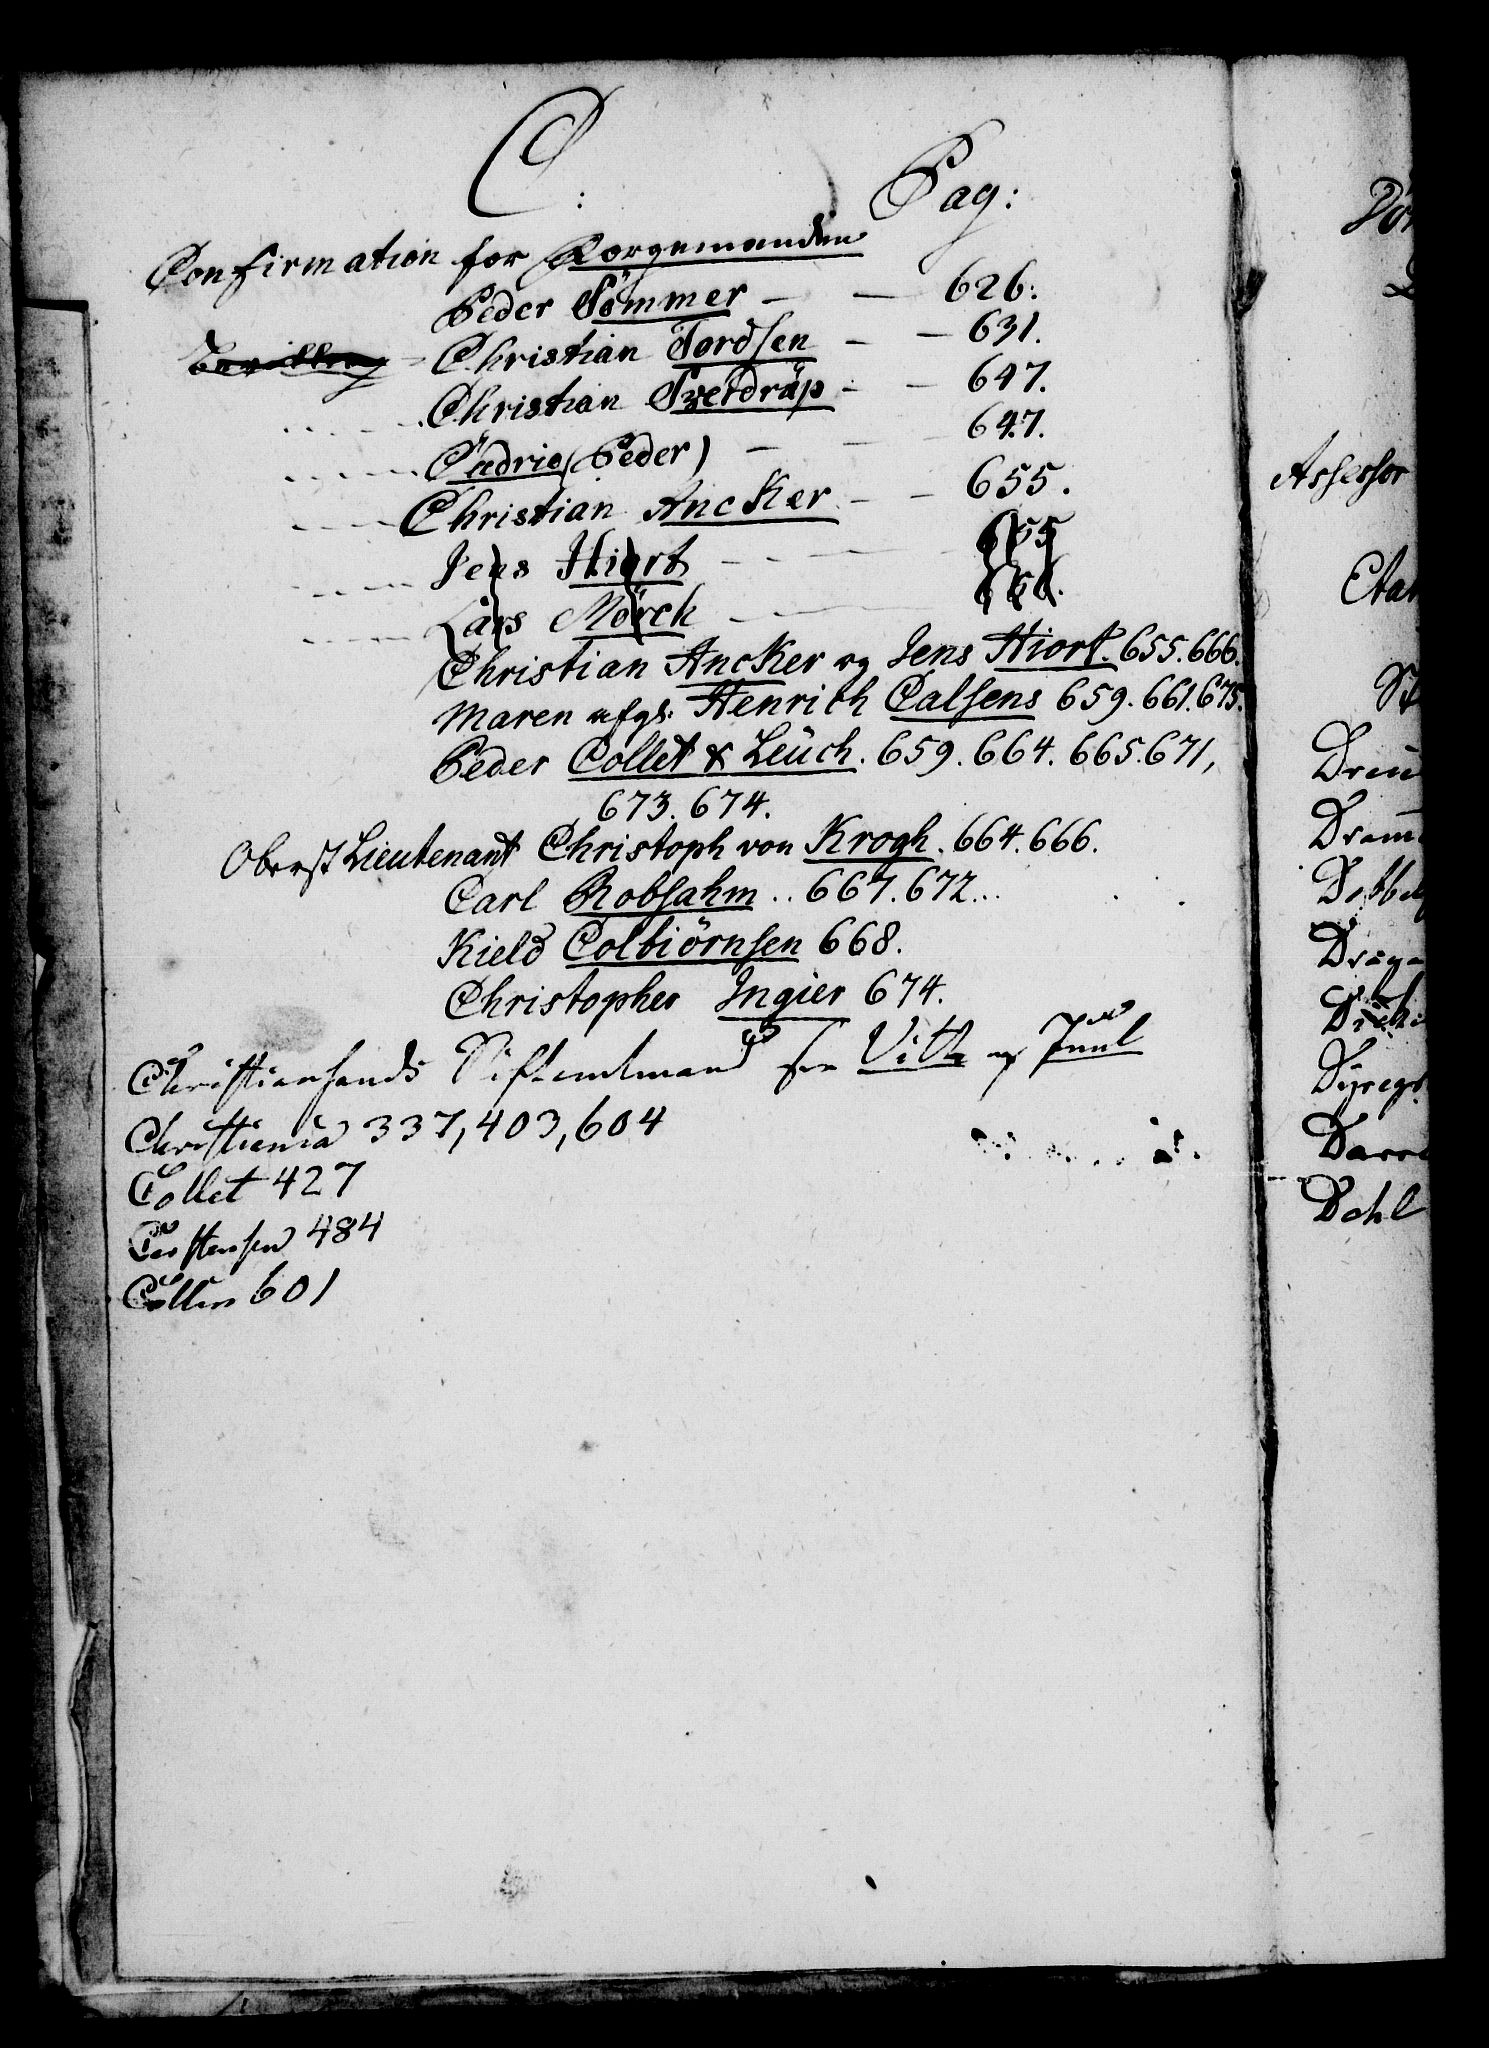 C:
Pag:
Confirmation for Borgemanden
Peder Sömmer — — 626:
Christian Tordsen — — 631.
Christian Svetdrup — — 647.
(Peder) — — — 647.
Christian Ancker — — 655.
Jens Hiort — — — 655
Lars Mörch — — 656.
Christian Ancker og Jens Hiort. 655.666.
Maren afgl: Henrich Calsens 659.661.675.
Peder Collet & Leuch. 659.664.665.671,
673.674.
Oberst Lieutenant Christoph von Krogh. 664.666.
Carl Robsahm .. 667.672...
Kield Colbiörnsen 668.
Christopher Ingier 674.
Christiansands Stiftamtmand see Vitt og Juul
Christiania 337,403,604
Collet 427
Carstensen 484
Collin 601
Assessor
Etat
Dreü
Dram
Dobbel
Drag
Dyreg
Dahl